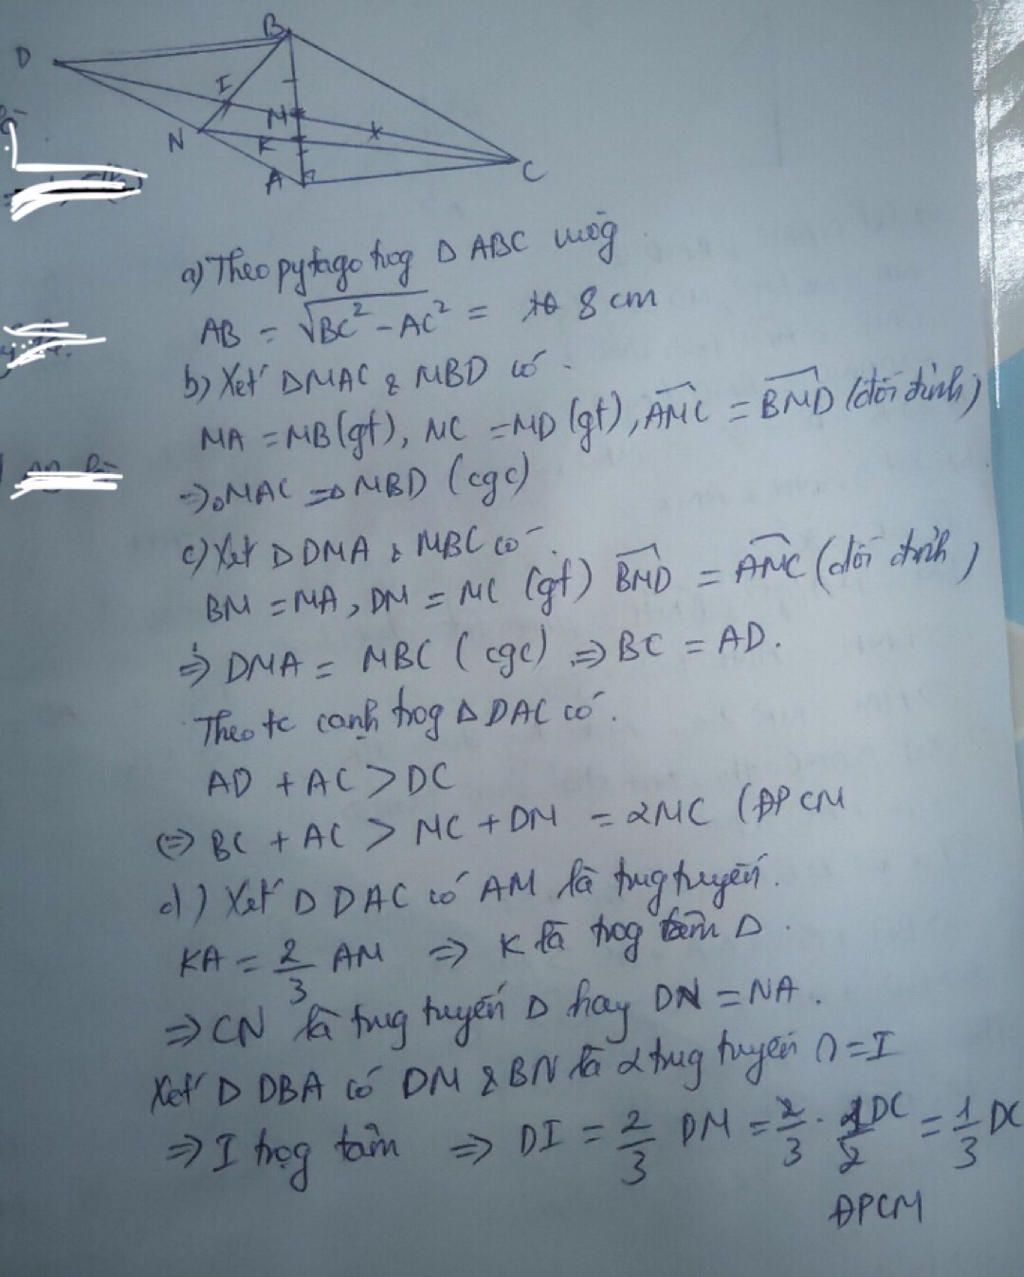 B
D
I
M
N
K
A
C
a) Theo pytago trog Δ ABC vuôg
AB = √BC² - AC² = 8 cm
b) Xét ΔMAC & MBD có
MA = MB (gt), MC = MD (gt), AMC = BMD (đối đỉnh)
=> ΔMAC = Δ MBD (cgc)
c) Xét Δ DMA & MBC có
BM = MA, DM = MC (gt) BMD = AMC (đối đỉnh)
=> DMA = MBC (cgc) => BC = AD.
Theo tc cạnh trog Δ DAC có.
AD + AC > DC
<=> BC + AC > MC + DM = 2MC (ĐPCM
d) Xét Δ DAC có AM là trug tuyến.
KA = 2/3 AM => K là trog tâm Δ.
=> CN là trug tuyến Δ hay DN = NA.
Xét Δ DBA có DM & BN là 2 trug tuyến ∩ = I
=> I trọg tâm => DI = 2/3 DM = 2/3 . 1DC/2 = 1/3 DC
ĐPCM